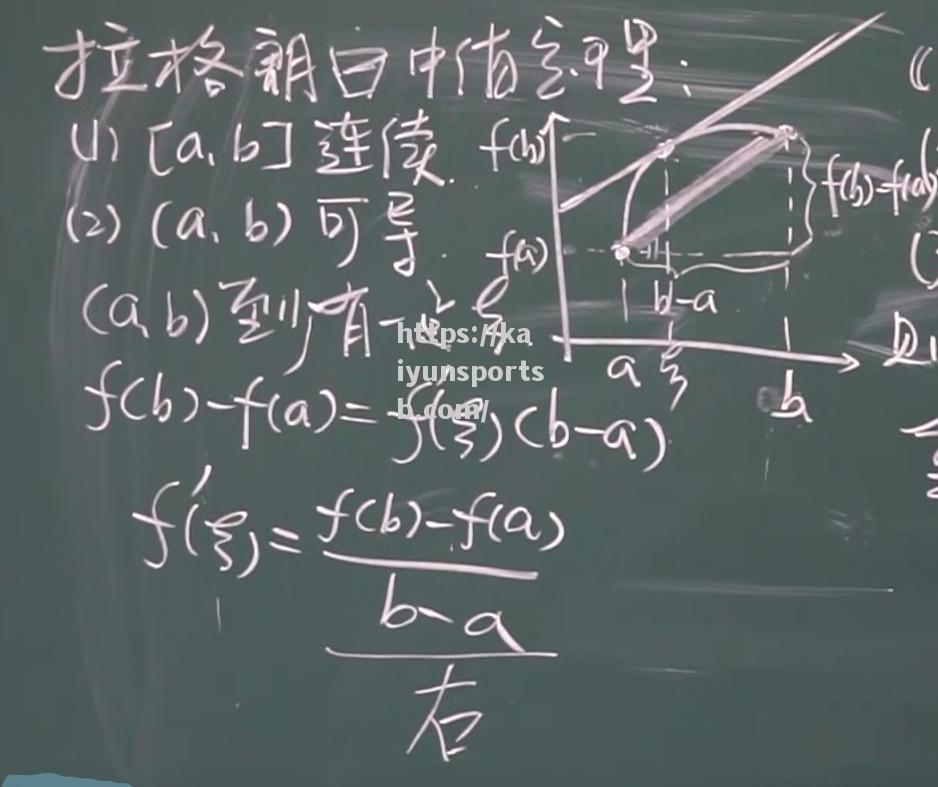 拉格朗日中值定理:
(1) [a,b] 连续.
(2) (a,b) 可导.
(a,b) 至少有一点 ξ
f(b)-f(a)=f'(ξ)(b-a)
f'(ξ)=
f(b)-f(a)
b-a
右
f(b)
f(a)
f(b)-f(a)
b-a
a ξ b
https://ka
iyunsports
b.com/